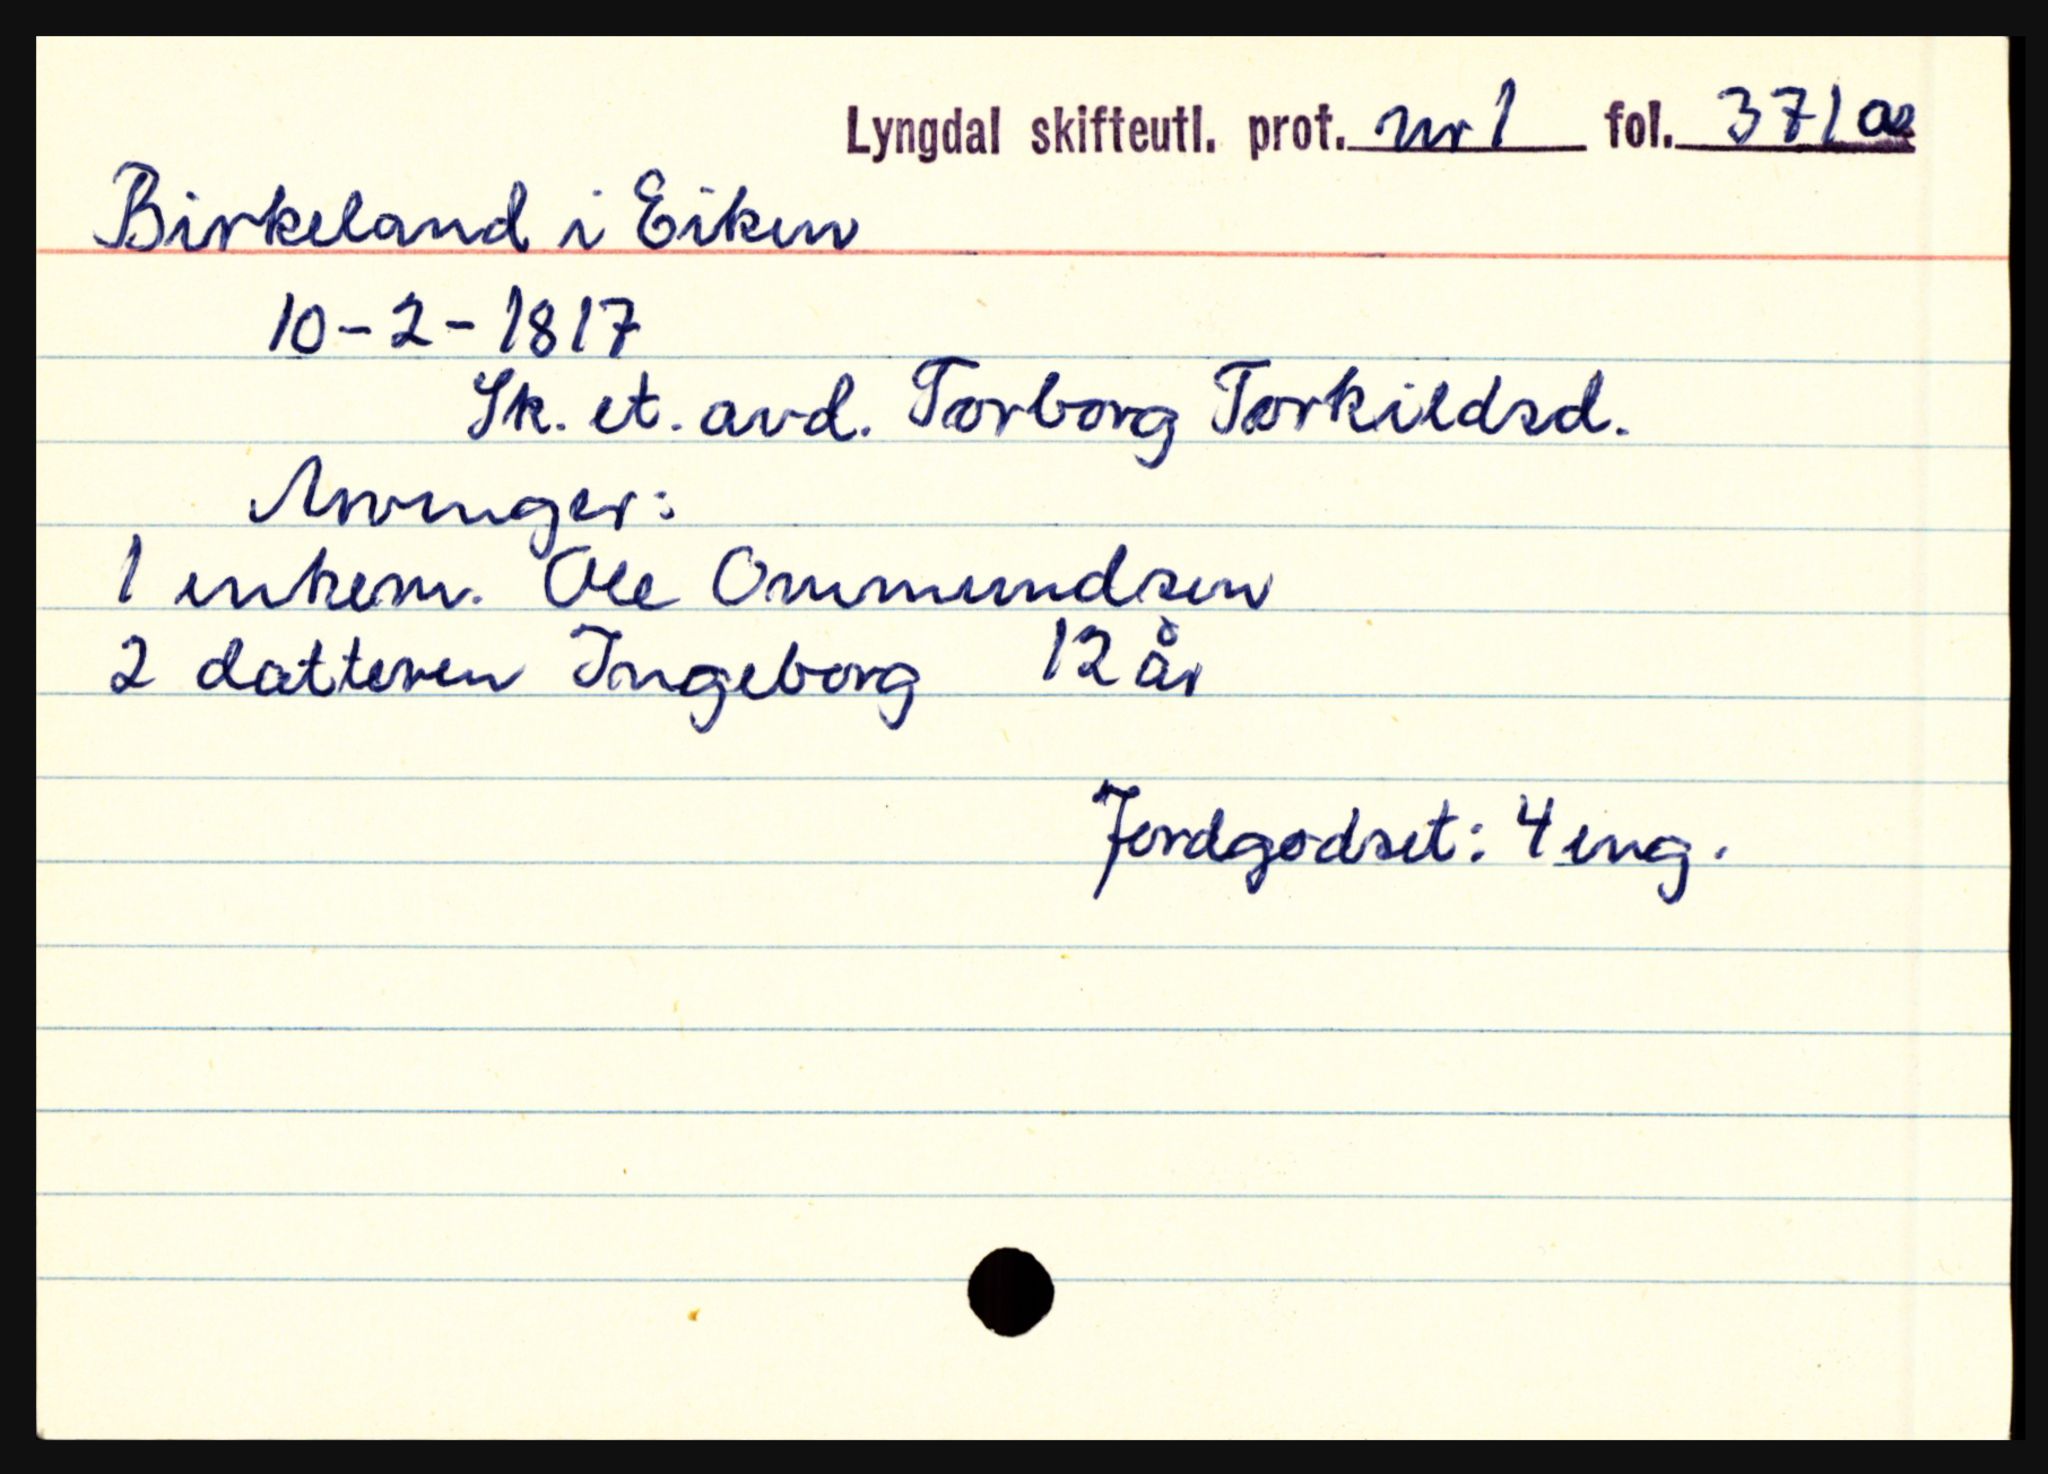 Lyngdal skifteutl. prot. nr 1 fol. 371a
Birkeland i Eiken
10-2-1817
Sk. et. avd. Torborg Torkildsd.
Arvinger:
1 enkem. Ole Ommundsen
2 datteren Ingeborg 12 år
Jordgodset: 4 eng.